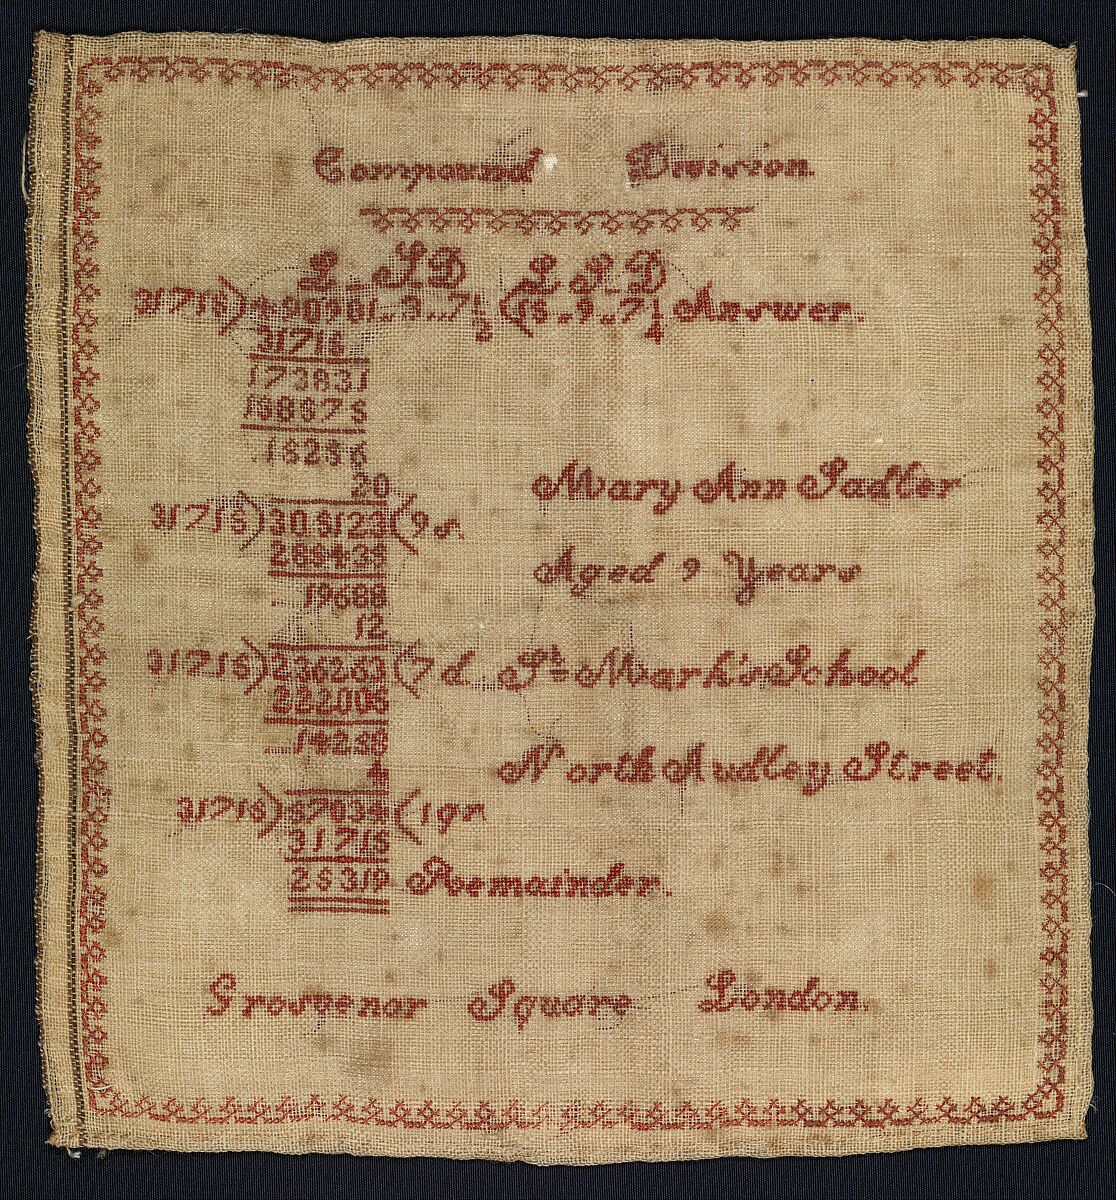 Compound Division.
L S D L S D
31715)490981..3..7½(15..9..7¼ Answer.
31715
173831
158575
.15256
20
31715)305123(9s.
285435
.19688
12
31715)236263(7d
222005
.14258
4
31715)57034(1qr.
31715
25319 Remainder.
Mary Ann Sadler
Aged 9 Years
St Mark's School
North Audley Street.
Grosvenor Square London.